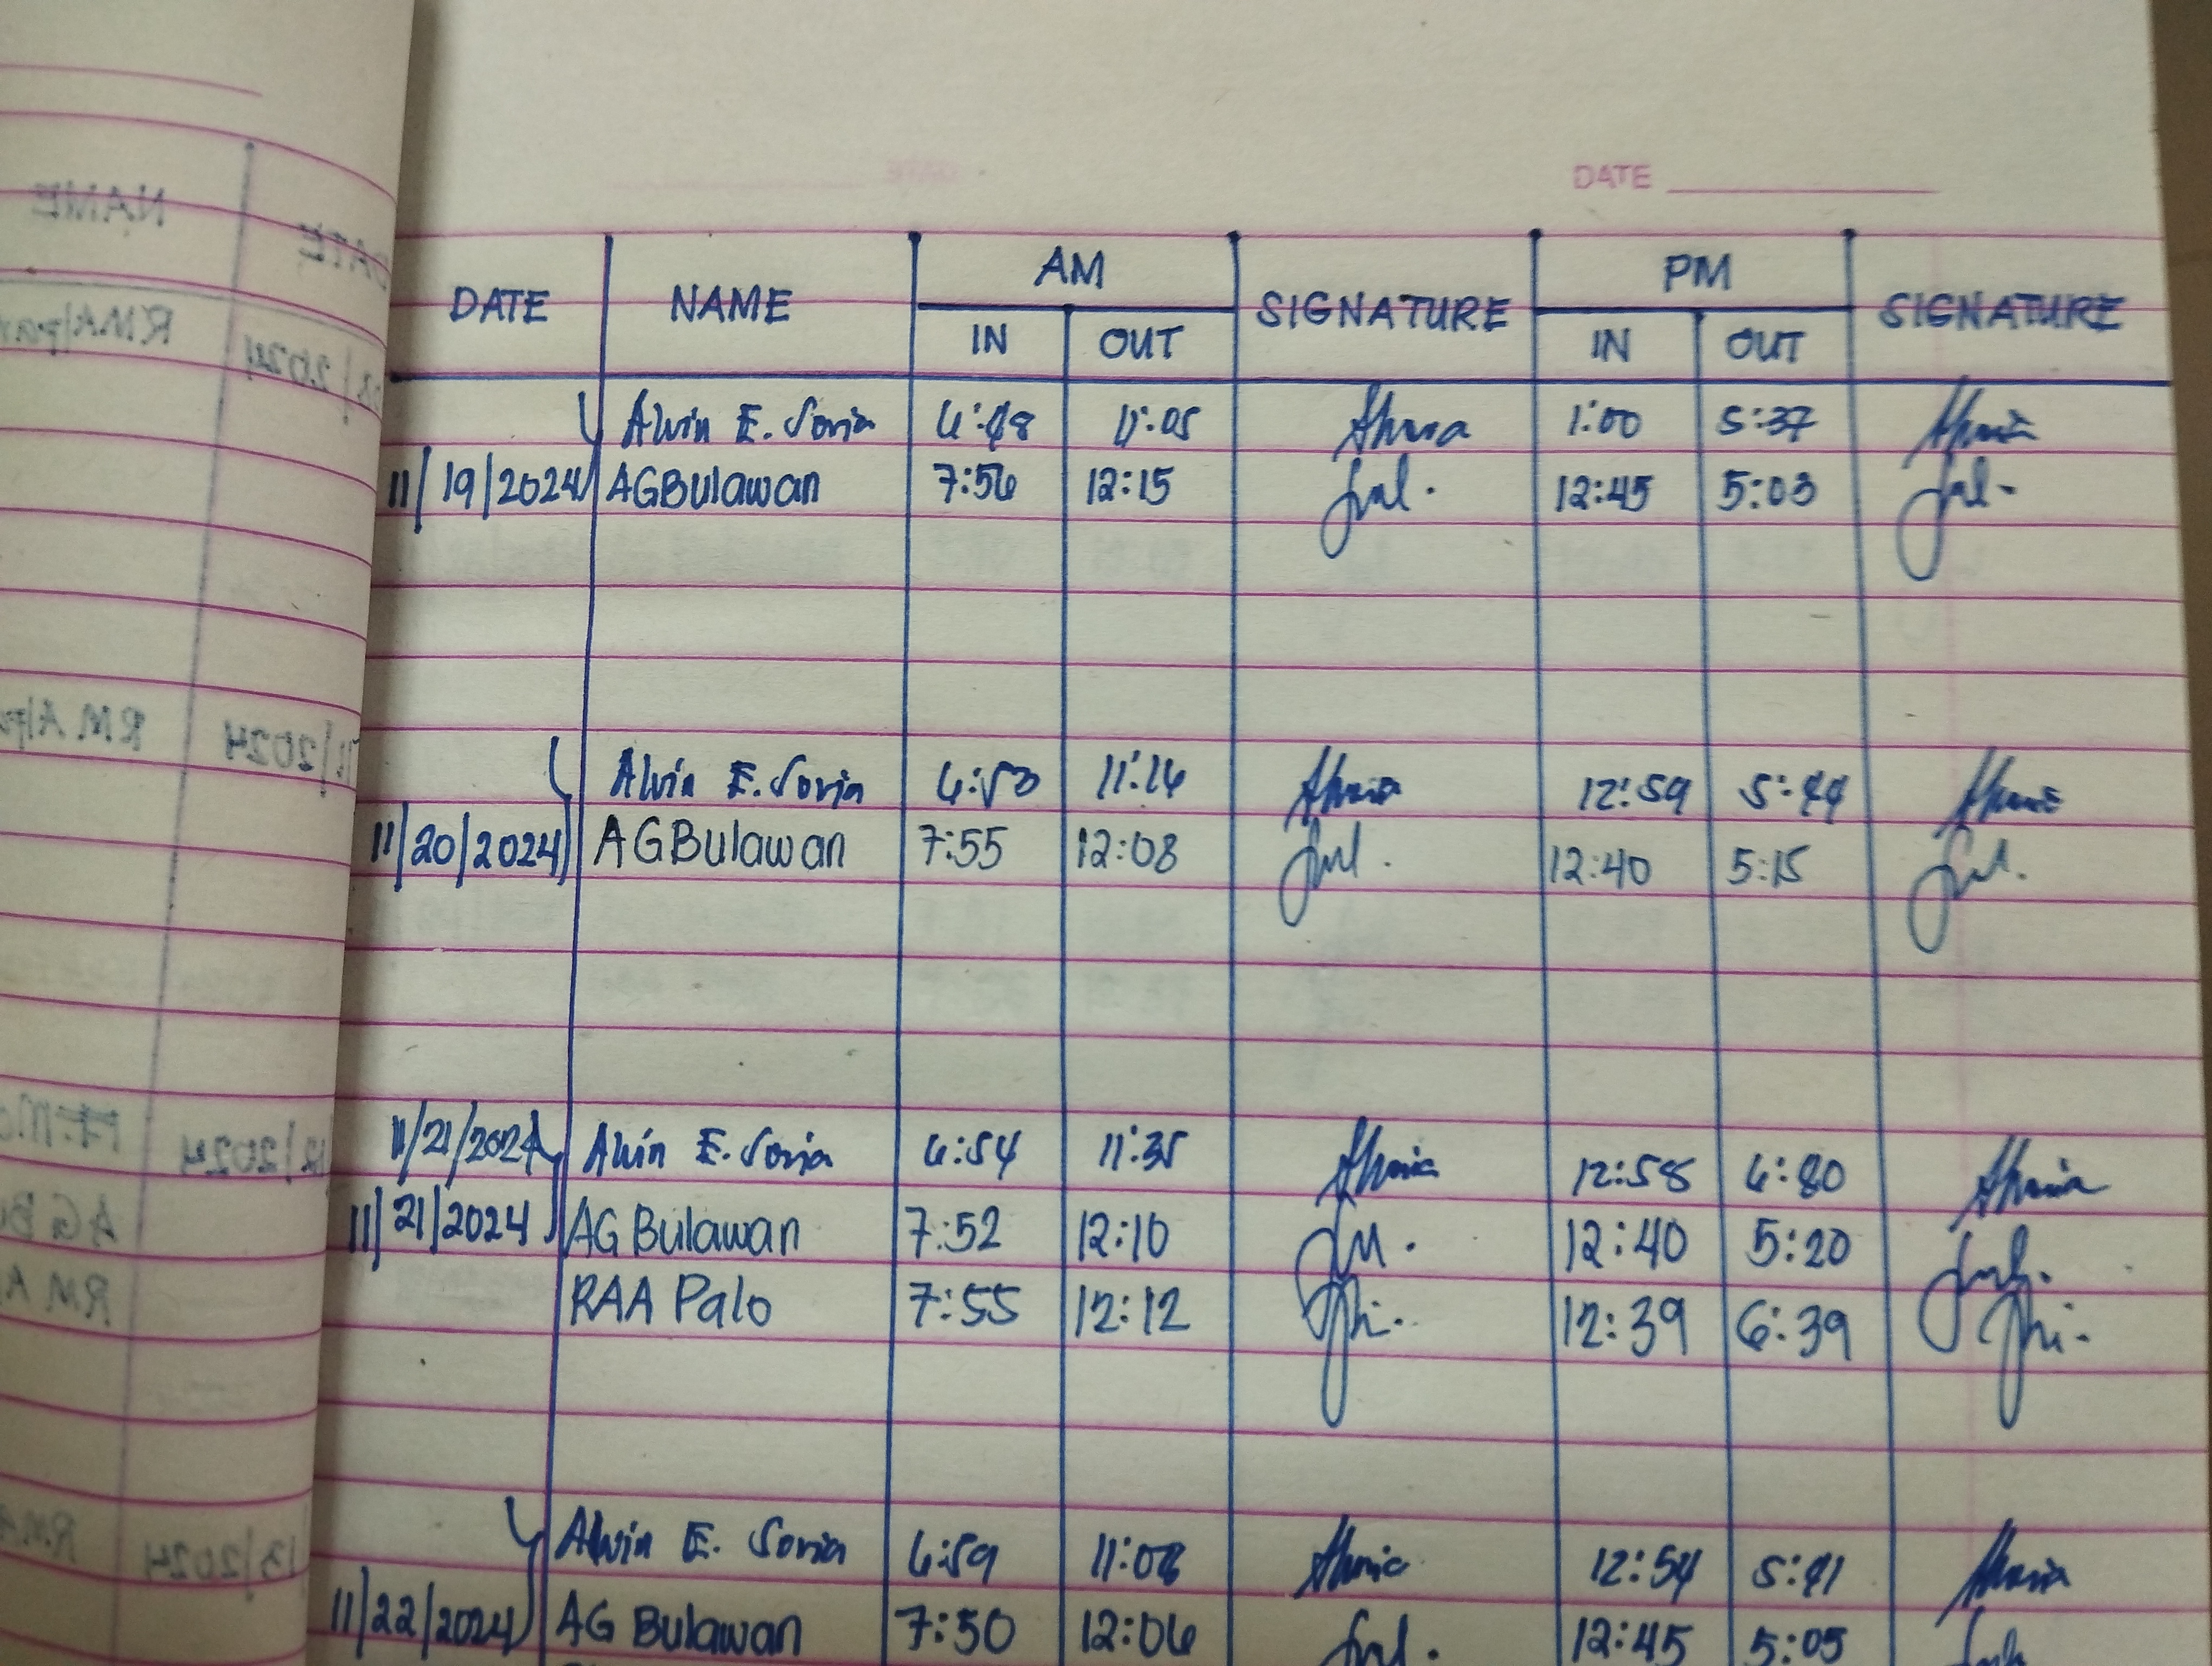 DATE
DATE NAME AM SIGNATURE PM SIGNATURE
IN OUT IN OUT
Alvin E. Soria 6:48 11:05 1:00 5:37
11/19/2024 AGBulawan 7:56 12:15 12:45 5:03
Alvin E. Soria 6:53 11:16 12:59 5:44
11/20/2024 AGBulawan 7:55 12:08 12:40 5:15
11/21/2024 Alvin E. Soria 6:54 11:35 12:58
11/21/2024 AG Bulawan 7:52 12:10 12:40 5:20
RAA Palo 7:55 12:12 12:39 6:39
Alvin E. Soria 6:59 11:08 12:54 5:41
11/22/2024 AG Bulawan 7:50 12:06 12:45 5:05